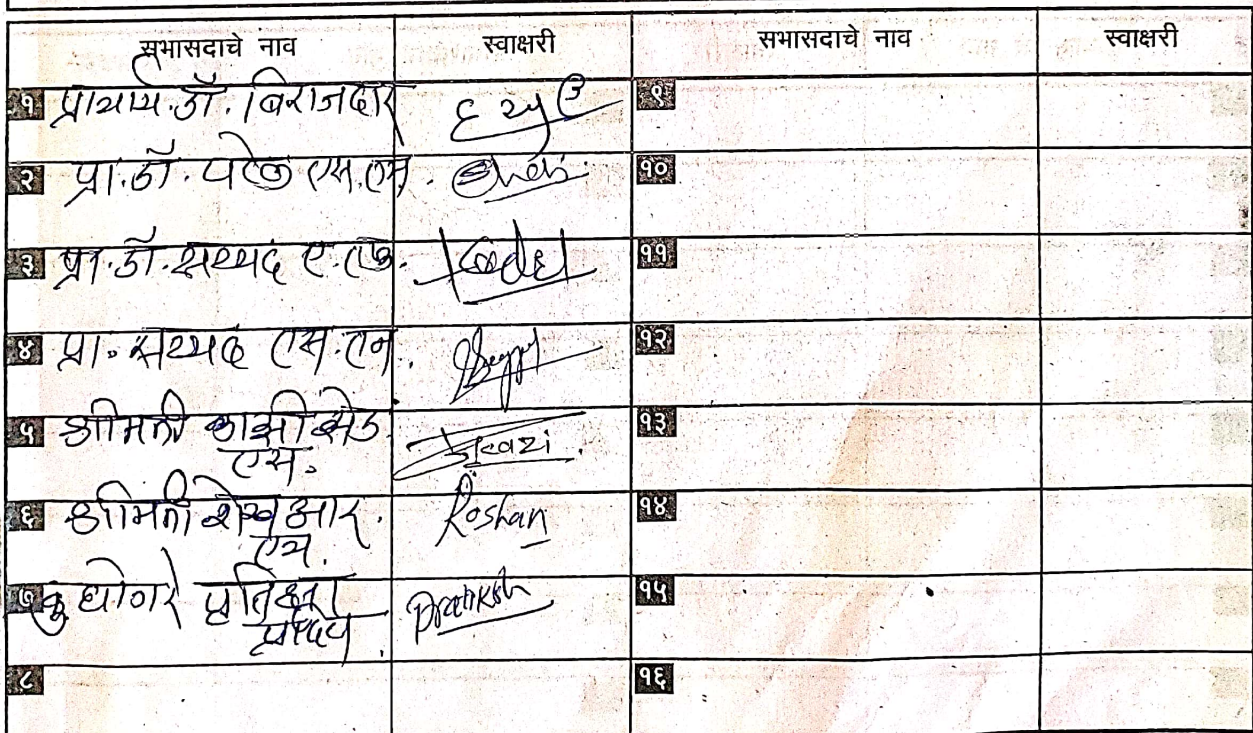 सभासदाचे नाव स्वाक्षरी सभासदाचे नाव स्वाक्षरी
१ प्राचार्य.डॉ. बिराजदार ९
२ प्रा.डॉ. पटेल एस.एम. १०
३ प्रा.डॉ. सय्यद ए.एफ. ११
४ प्रा. सय्यद एस.एन. १२
५ श्रीमती काझी झेड Kazi १३
एस.
६ श्रीमती शेख आर. Roshan १४
एच.
७ कु घोगरे प्रतिक्षा Pratiksh १५
प्रदिप
८ १६